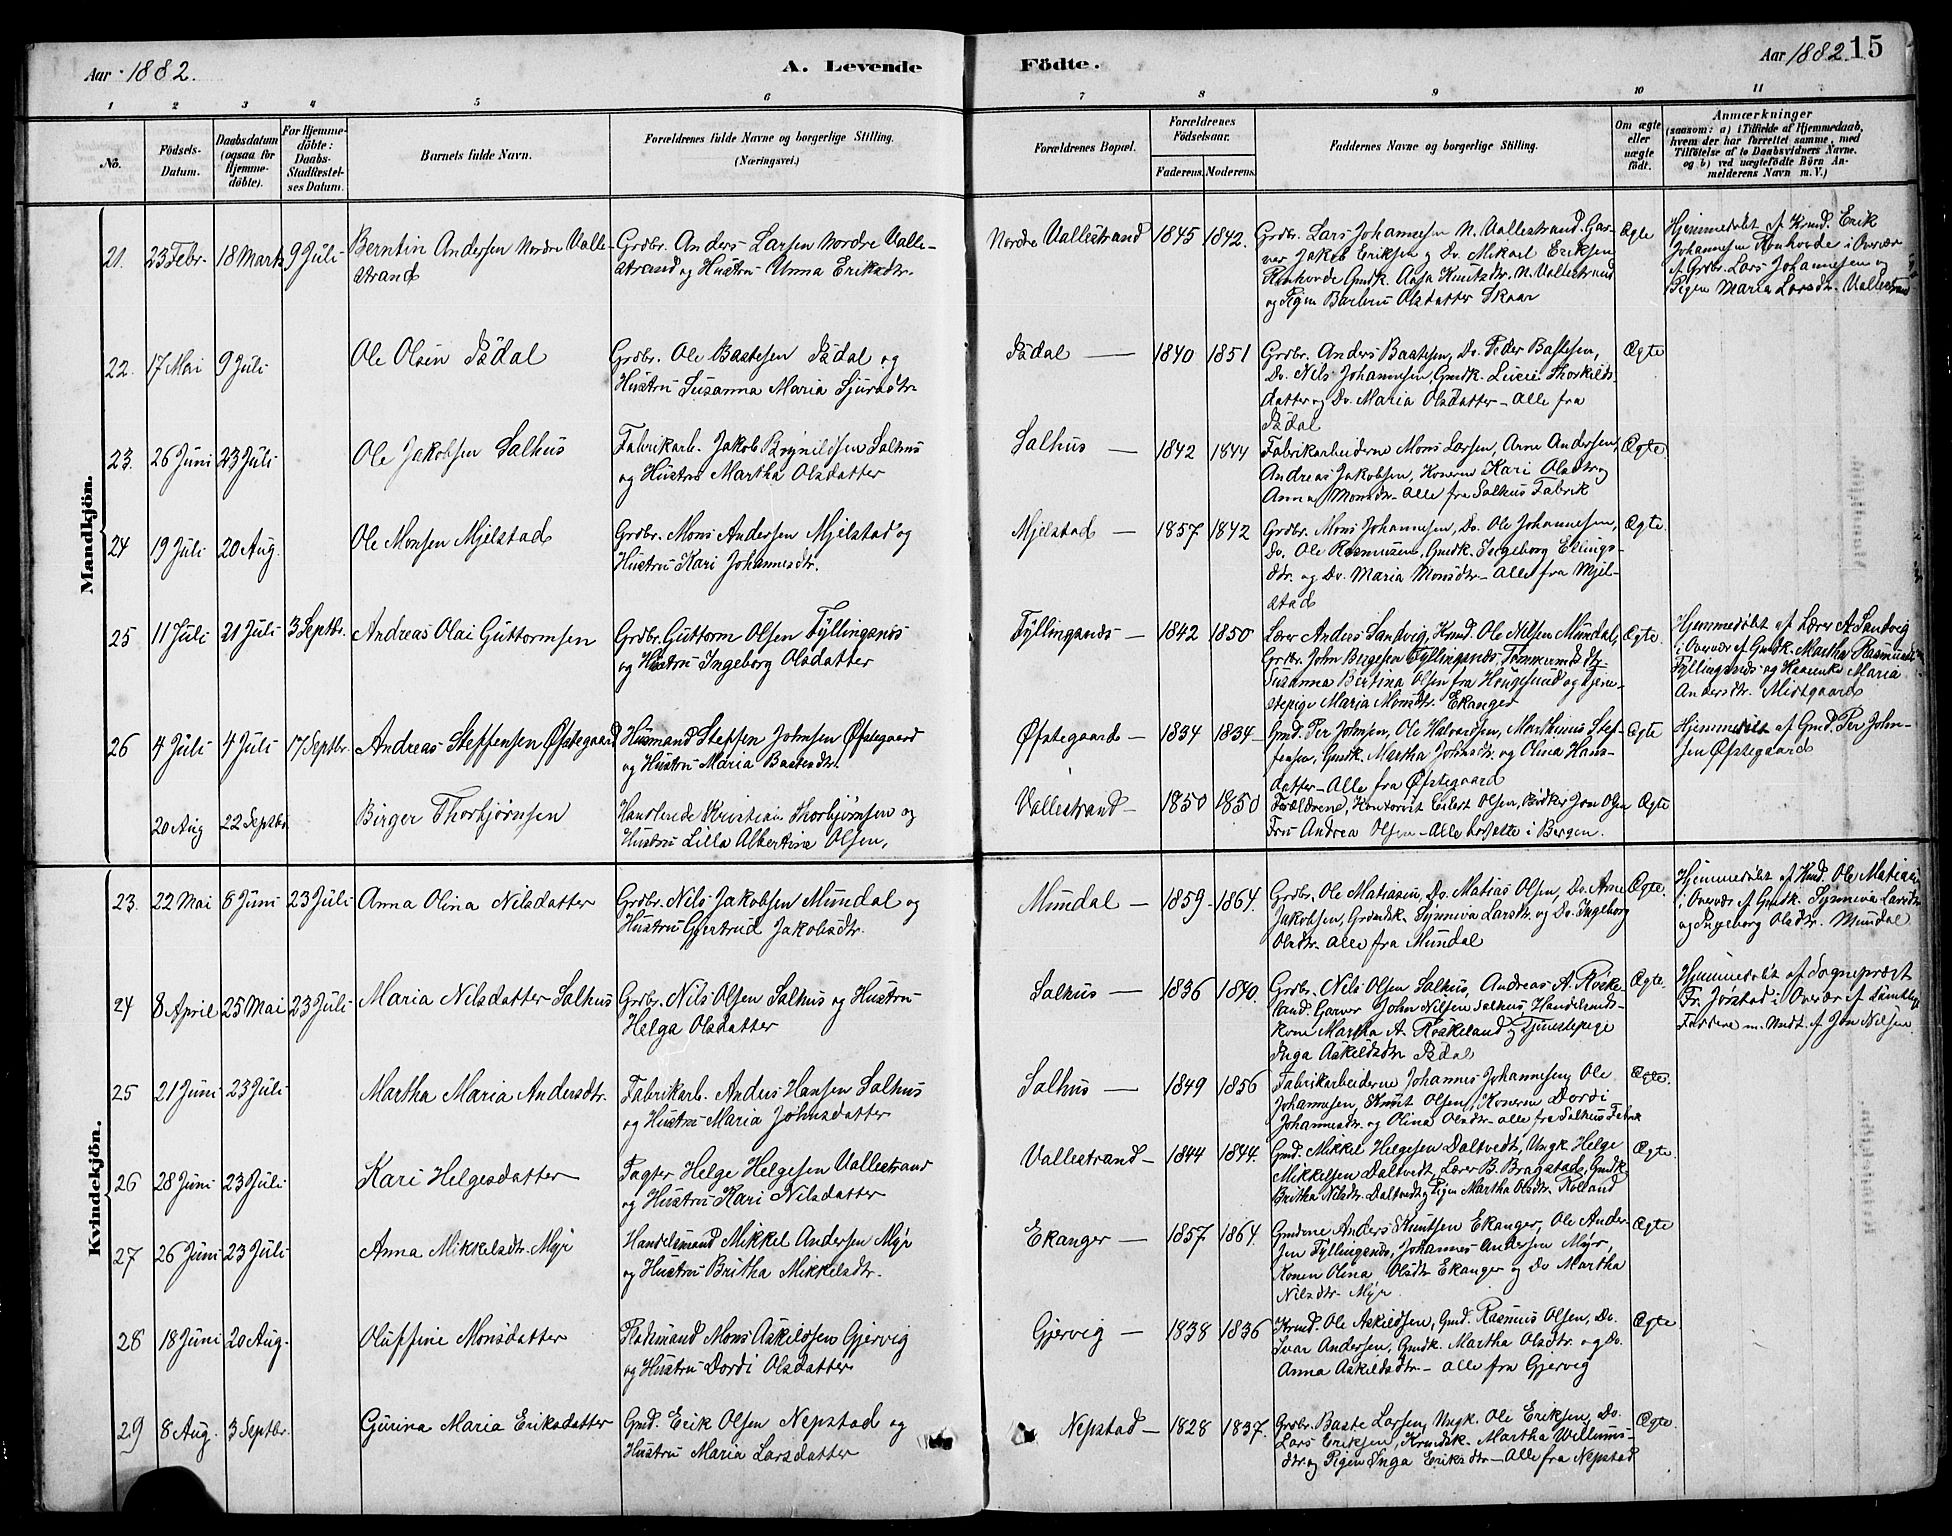 Aar 1882.
A. Levende Födte.
Aar 1882 15
1 2 3 4 5 6 7 8 9 10 11
No.
Födsels-
Datum.
Daabsdatum
(ogsaa for
Hjemme-
döbte).
For Hjemme-
döbte:
Daabs-
Stadfæstel-
ses Datum.
Barnets fulde Navn.
Forældrenes fulde Navne og borgerlige Stilling.
(Næringsvei.)
Forældrenes Bopæl.
Forældrenes
Födselsaar.
Faderens. Moderens.
Faddernes Navne og borgerlige Stilling.
Om ægte
eller
uægte
födt.
Anmærkninger
(saasom: a) i Tilfælde af Hjemmedaab,
hvem der har forrettet samme, med
Tilföielse af to Daabsvidners Navne,
og b) ved uægtefödte Börn An-
melderens Navn m. V.)
Mandkjön.
21. 23 Febr. 18 Marts 9 Juli
Berntin Andersen Nordre Valle-
strand
Grdbr. Anders Larsen Nordre Valle-
strand og Hustru Unna Eriksdtr.
Nordre Vallestrand 1845 1842.
Grdbr. Lars Johannesen N. Vallestrand. Gar-
ver Jakob Eriksen og Do. Mikael Eriksen
Ronhovde Gmdk. Anja Knutsdtr. N. Vallestrand
og Pigen Barbru Olsdatter Skaar
Ægte
Hjemmedøbt af Kmd. Erik
Johannesen Ronhovde i Overvær
af Grdbr. Lars Johannesen og
Pigen Maria Larsdtr. Vallestrand
22. 17 Mai 9 Juli
Ole Olsen Ådal
Grdbr. Ole Bastesen Ådal og
Hustru Susanna Maria Sjursdtr.
Ådal — 1840 1851
Grdbr. Anders Bastesen, Do. Peder Bastesen,
Do. Nils Johannesen, Gmdk. Lucie Thorkilds-
datter og Do. Maria Olsdatter – alle fra
Ådal
Ægte
23. 26 Juni 23 Juli
Ole Jakobsen Salhus
Fabrikarb. Jakob Brynildsen Salhus
og Hustru Martha Olsdatter
Salhus — 1842 1844
Fabrikarbeiderne Mons Larsen, Arne Andersen,
Andreas Jakobsen, Konerne Kari Olsdtr. og
Anna Monsdtr. alle fra Salhus Fabrik
Ægte.
24 19 Juli 20 Aug.
Ole Monsen Mjelstad
Grdbr. Mons Andersen Mjelstad og
Hustru Kari Johannesdtr.
Mjelstad — 1857 1842
Grdbr. Mons Johannesen, Do. Ole Johannesen,
Do. Ole Rasmusen, Gmdk. Ingeborg Ellings-
dtr. og Do. Maria Monsdtr – Alle fra Mjel-
stad
Ægte.
25 11 Juli 21 Juli 3 Septbr.
Andreas Olai Guttormsen
Grdbr. Guttorm Olsen Fyllingsnes
og Hustru Ingeborg Olsdatter
Fyllingsnes — 1842 1850
Lærer Anders Sandvig, Kmd. Ole Nilsen Mundal,
Grdbr. John Børgesen Fyllingsnes, Tømmermds dtr.
Susanna Bertina Olsen fra Haugesund og Tjene-
stepige Maria Monsdtr. Ekanger
Ægte.
Hjemmedøbt af Lærer A. Sandvig
i Overvær af Gmdk. Martha Rasmusdtr.
Fyllingsnes og Maria
Andersdtr. Midtgaard
26 4 Juli 4 Juli 17 Septbr.
Andreas Steffensen Øfstegaard
Husmand Steffen Johnsen Øfstegaard
og Hustru Maria Bastesdtr.
Øfstegaard — 1834 1834
Gmd. Per Johnsen, Ole Halvorsen, Marthinus Stef-
fensen, Gmdk. Martha Johnsdtr. og Olina Hans-
datter – Alle fra Øfstegaard
Ægte
Hjemmedøbt af Gmd. Per John-
sen Øfstegaard
20 Aug 22 Septbr
Birger Thorbjørnsen
Handlende Kristian Thorbjørnsen og
Hustru Lilla Albertine Olsen,
Vallestrand — 1850 1850
Forældrene, Kontorist Eilert Olsen, Jon Olsen
Fru Andrea Olsen – Alle bosatte i Bergen.
Ægte
Kvindekjön.
23. 22 Mai 8 Juni 23 Juli
Anna Olina Nilsdatter
Grdbr. Nils Jakobsen Mundal og
Hustru Gjertrud Jakobsdtr.
Mundal — 1859 1864.
Grdbr. Ole Matiasen, Do. Matias Olsen, Do. Arne
Jakobsen, Grmdsk. Synneva Larsdtr. og Do. Ingeborg
Olsdtr. alle fra Mundal
Ægte.
Hjemmedøbt af Kmd. Ole Matiasen
i Overvær af Gmdk. Synneva Larsdtr.
og Ingeborg Olsdtr. Mundal
24 8 April 25 Mai 23 Juli
Maria Nilsdatter Salhus
Grdbr. Nils Olsen Salhus og Hustru
Helga Olsdatter
Salhus — 1836 1840.
Grdbr. Nils Olsen Salhus, Andreas A. Roske-
land. Garver John Nilsen Salhus Handelsmds-
kone Martha A. Roskeland og Tjenestepige
Inga Askildsdtr. Ådal
Ægte.
Hjemmedøbt af Sogneprest
Fr. Jørstad i Overvær af samtlige
Faddere m. Undt. af Jon Nilsen.
25 21 Juni 23 Juli
Martha Maria Andersdtr.
Fabrikarb. Anders Hansen Salhus
og Hustru Maria Johnsdatter
Salhus — 1849 1856
Fabrikarbeiderne Johannes Johannesen, Ole
Johannesen, Knut Olsen, Konerne Dordi
Johannesdtr. og Olina Olsdtr. alle fra Salhus Fabrik
Ægte.
26 28 Juni 23 Juli
Kari Helgesdatter
Fagter Helge Helgesen Vallestrand
og Hustru Kari Nilsdatter
Vallestrand — 1844 1844.
Gmd. Mikkel Helgesen Daltvedt, Ungk. Helge
Mikkelsen Daltvedt, Lærer B. Brogstad, Gmdk.
Britha Nilsdtr. Daltvedt og Pigen Martha Olsdtr. Rolland
Ægte.
27 26 Juni 23 Juli
Anna Mikkelsdtr. Myr
Handelsmand Mikkel Andersen Myr
og Hustru Britha Mikkelsdtr.
Ekanger — 1857 1864.
Gmdene Anders Knutsen Ekanger, Ole Ander-
sen Fyllingsnes, Johannes Andersen Myr,
Konen Olina Olsdtr Ekanger og Do Martha
Nilsdtr. Myr.
Ægte
28 18 Juni 20 Aug.
Oluffine Monsdatter
Pladsmand Mons Askildsen Gjervig
og Hustru Dordi Olsdatter
Gjervig — 1838 1836
Kmd. Ole Askildsen, Gmd. Rasmus Olsen, Do.
Ivar Andersen, Gmdk. Martha Olsdtr. og Do.
Anna Askildsdtr. – Alle fra Gjervig
Ægte
29 8 Aug. 3 Septbr.
Gurina Maria Eriksdatter
Gmd. Erik Olsen Nepstad og
Hustru Maria Larsdatter
Nepstad — 1828 1837.
Grdbr. Baste Larsen, Ungk. Ole Eriksen, Do.
Lars Eriksen, Kmdsk. Martha Willums-
dtr og Pigen Inga Eriksdtr – Alle fra Nepstad
Ægte.